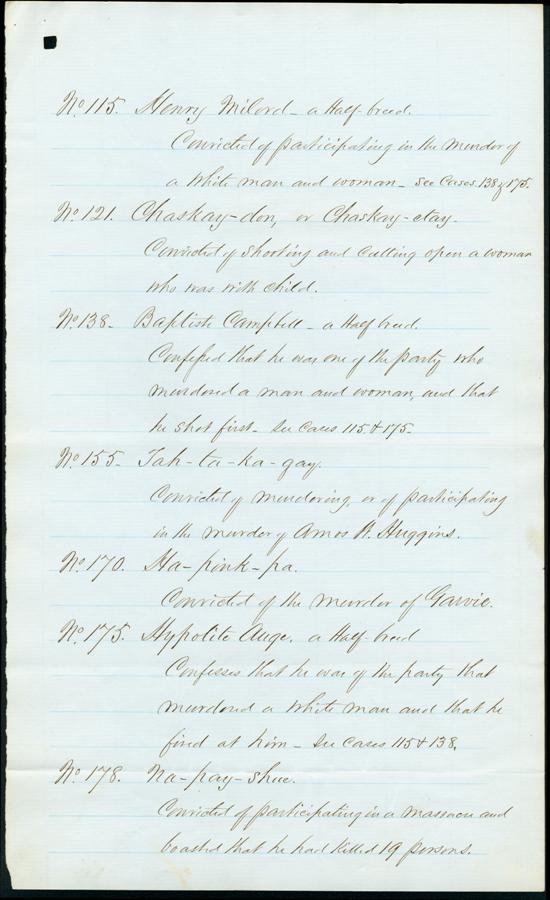 No. 115. Henry Milord - a Half-breed.
Convicted of participating in the murder of
a white man and woman - See Cases. 138 & 175.
No. 121. Chaskay-don, or Chaskay-etay.
Convicted of shooting and cutting open a woman
who was with child.
No. 138. Baptiste Campbell - a Half breed.
Confessed that he was one of the party who
murdered a man and woman, and that
he shot first - See Cases 115 & 175.
No. 155. Tah-ta-ka-gay.
Convicted of murdering, or of participating
in the murder of Amos W. Huggins.
No. 170. Ha-pink-pa.
Convicted of the murder of Garvie.
No. 175. Hypolite Auge. a Half-breed
Confesses that he was of the party that
murdered a white man and that he
fired at him - See Cases 115 & 138.
No. 178. Na-pay-shue.
Convicted of participating in a massacre and
boasted that he had killed 19 persons.